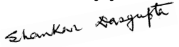 Shankar Dasgupta